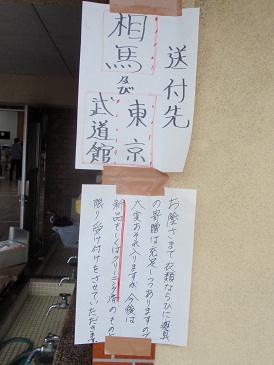 送付先
相馬
及び
東京
武道館
お陰さまで衣類ならびに道具
の寄贈は充足しつつありますので
大変おそれ入りますが、今後は
新品もしくはクリーニング済のものに
限り受け付けをさせていただきます